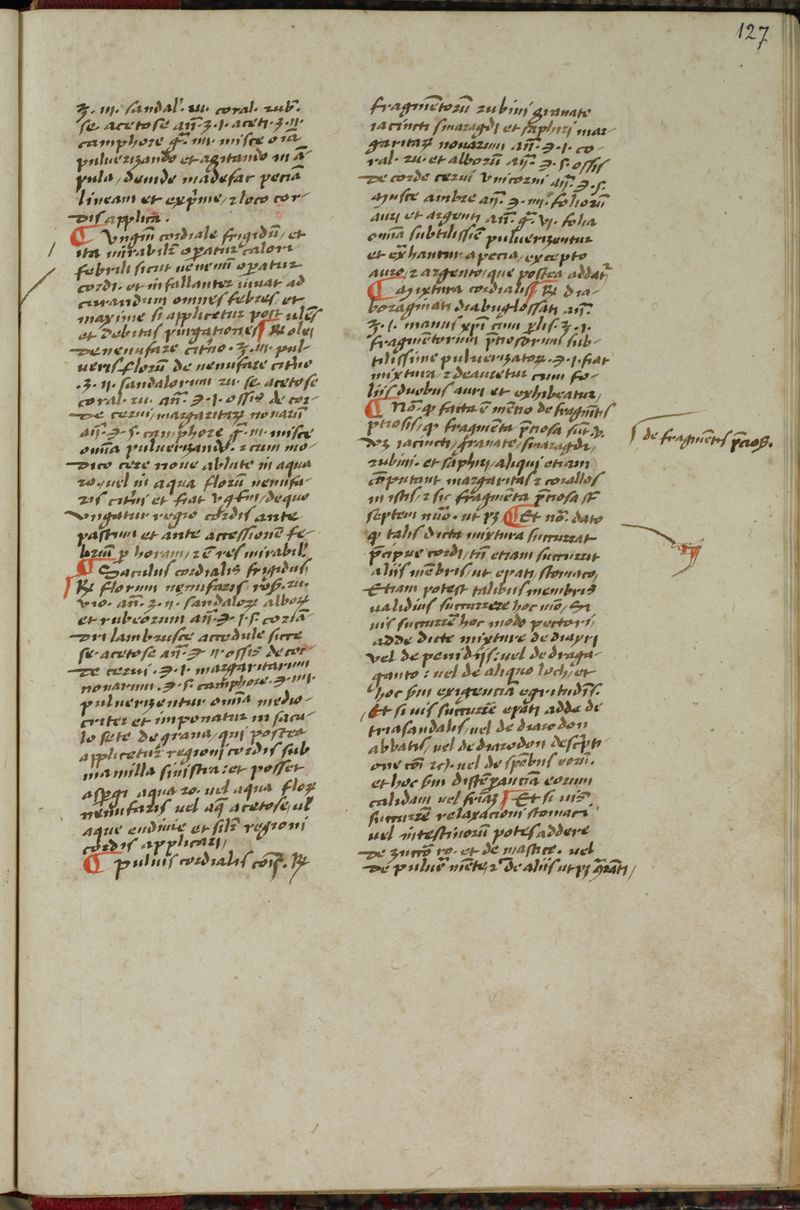 127
ʒ. iii. sandaľ. ru. coral. rub̃.
se. acetose añ. ʒ. i. aceti. ʒ. ii.
camphore g̃. iiii. misce oĩa
pulverizando et agitando in ã
pula / deinde madefac peciã
lineam et exp̃me / ⁊ loco cor-
dis applica.
¶ Vngm̃ cordiale frigidũ / et
ita mirabilr̃ op̃atur calori
febrili sicut venenũ op̃atur
cordi. et infallanter iuvat ad
curandum omnes febres / et
maxime si applicetur post vlẽs
et debitas purgationes ¶ ℞ olei
de nenufare citr̃io. ʒ. iii. pul-
veris florũ de nenufare citr̃io
. ʒ. ii. sandalorum ru. se. acetose
coral. ru. añ. ℈. i. ossis de cor-
de cervi / margaritaꝝ novarũ
añ. ℈. s. camphore g̃. iii. misce
omĩa pulverizand̃. ⁊ cum mo-
dico cere nove ablute in aqua
ro. vel in aqua florũ nenufa-
ris citr̃ini et fiat vng̃tm̃ / de quo
vngatur regio cordis ante
pastum et ante accessionẽ fe-
briũ p̱ horam / ⁊ ẽ res mirabiľ
¶ Saculus cordialis frigidus
℞ florum nenufaris rosaꝝ. ru.
vio. añ. ʒ. ii. sandaloꝝ alboꝝ
et rubeorum añ. ℈ i. s. coriã-
dri lambrusce accedule sicce
se. acetose añ. ℈ ii. ossis de cor-
de cervi. ℈. i. margaritarum
novarum. ℈. s. camphore. ℈. iiii.
pulverizentur omĩa medio-
criter et imponatur in sacu-
lo sete de grana / qui postea
applicetur regioni cordis sub
mamilla sinistra: et posset
asp̱gi aqua ro. vel aqua floꝝ
nenufaris vel aq̃ acetose / vl̃
aque endivie et silr̃ regioni
cordis applicari /
¶ Pulvis cordialis cõis. ℞
fragmẽtorũ rubini granate
iacincti smaragdi et saphiri mar-
garitaꝝ novarum añ. ℈. i. co-
ral. ru. et alborũ añ. ℈. s. ossis
de corde cervi vnicorni añ. ℈. s.
musce ambre añ. ℈. iii. foliorũ
auri et argenti añ. g̃. vi. folia
omĩa subtilissiẽ pulverizentur
et exhantur a pecia / excepto
auro / ⁊ argento / que postea addat̃
¶ Mixtura cordialis ¶ ℞ dia-
boraginati diabuglossati añ.
ʒ. i. manus xp̃i cum p̱lis. ʒ. i.
fragmentorum p̃ciosorum sub-
tilissime pulverizatoꝝ. ℈. i. fiat
mixtura / ⁊ deauretur cum fo-
liis duobus auri et exhibeatur /
¶ Nõ. ꝙ facta ẽ mẽtio de fragmẽtis
p̃tiosis / ꝙ fragmẽta p̃ciosa sunt. v.
vꝫ iacincti / granate / smaragdi /
rubini. et saphiri / aliqui etiam
cõputant margaritas ⁊ corallos
in istis / ⁊ sic fragmẽta p̃ciosa sũt
septem nũo. ut pꝫ ¶ Et nõ. dato
ꝙ talis dicta mixtura succurrat
p̃cipue cordi / tñ etiam succurrit
aliis mẽbris ut epati / stomaco /
Etiam potest talibus membris
validius succurrere hoc mõ / Si
vis succurrẽ hoc modo pectori /
adde dicte mixture de diayri
vel de penidiis: vel de draga-
ganto: vel de aliquo loch / et
hoc sm̃ exigenciã egritudĩs.
Et si vis succurrẽ epati adde de
triasandalis / vel de diarodon
abbatis / vel de diarodon descripti-
one cõi ⁊c. vel de sp̃ebus eoru.
et hoc sm̃ distẽp̱anciã eorum
calidam vel friã ¶ Et si vis
succurrẽ relaxacioni stomaci
vel intestinorũ potes addere
de zuccõ ro. et de mastice. vel
de pulvẽ mẽte / ⁊ de aliis ut pꝫ
de fragmẽtis p̃cios̃.